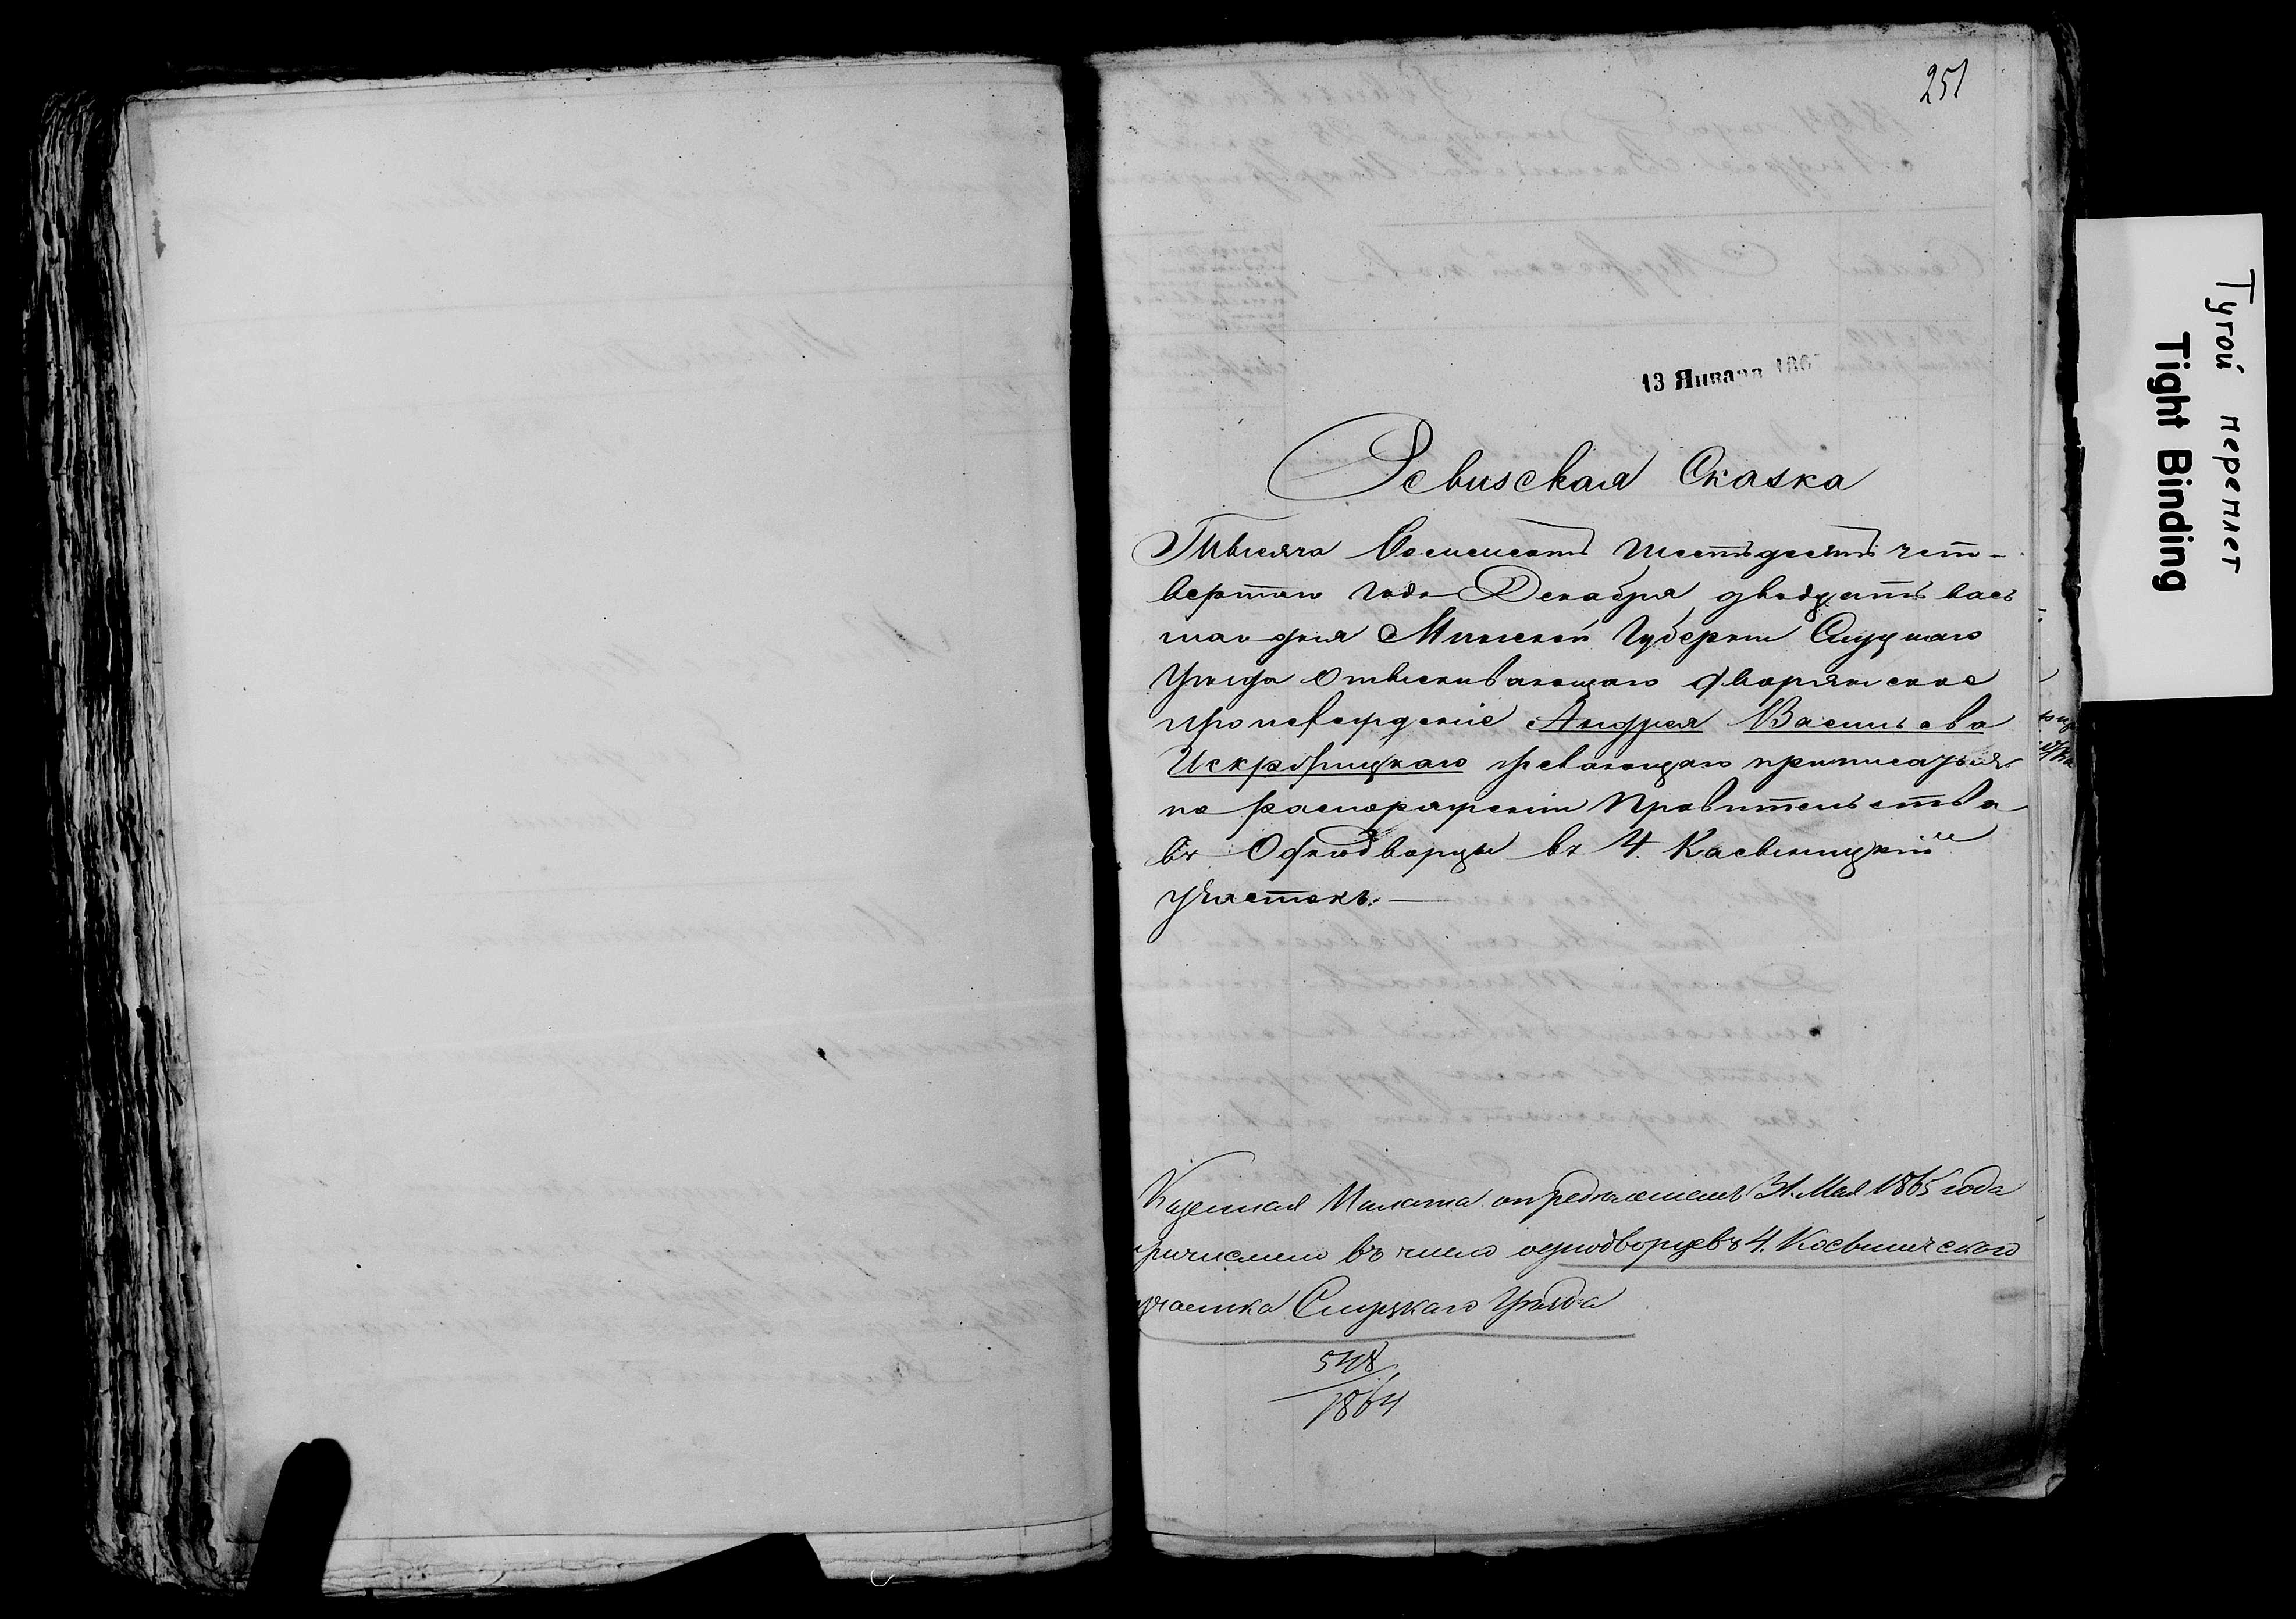 251
13 Января 186
Ревизская Сказка
Тысяча Восемсотъ шестьдесятъ чет-
вертаго года Декабря двадцать вась
маго дня Минской Губерніи Слуцкаго
Уѣзда Отыскивающаго дворянское
происхожденіе Андрея Васильева
Искржицкаго желающаго приписаться
по распоряженію Правительства
въ Однодворцы въ 4. Касвиницкій
участокъ.—
Казенная Палата опредѣленіемъ 31. Мая 1865 года
причислено въ число однодворцевъ 4. Косвиничского
участка Слуцкаго Уѣзда
548
1864
Тугой переплет
Tight Binding